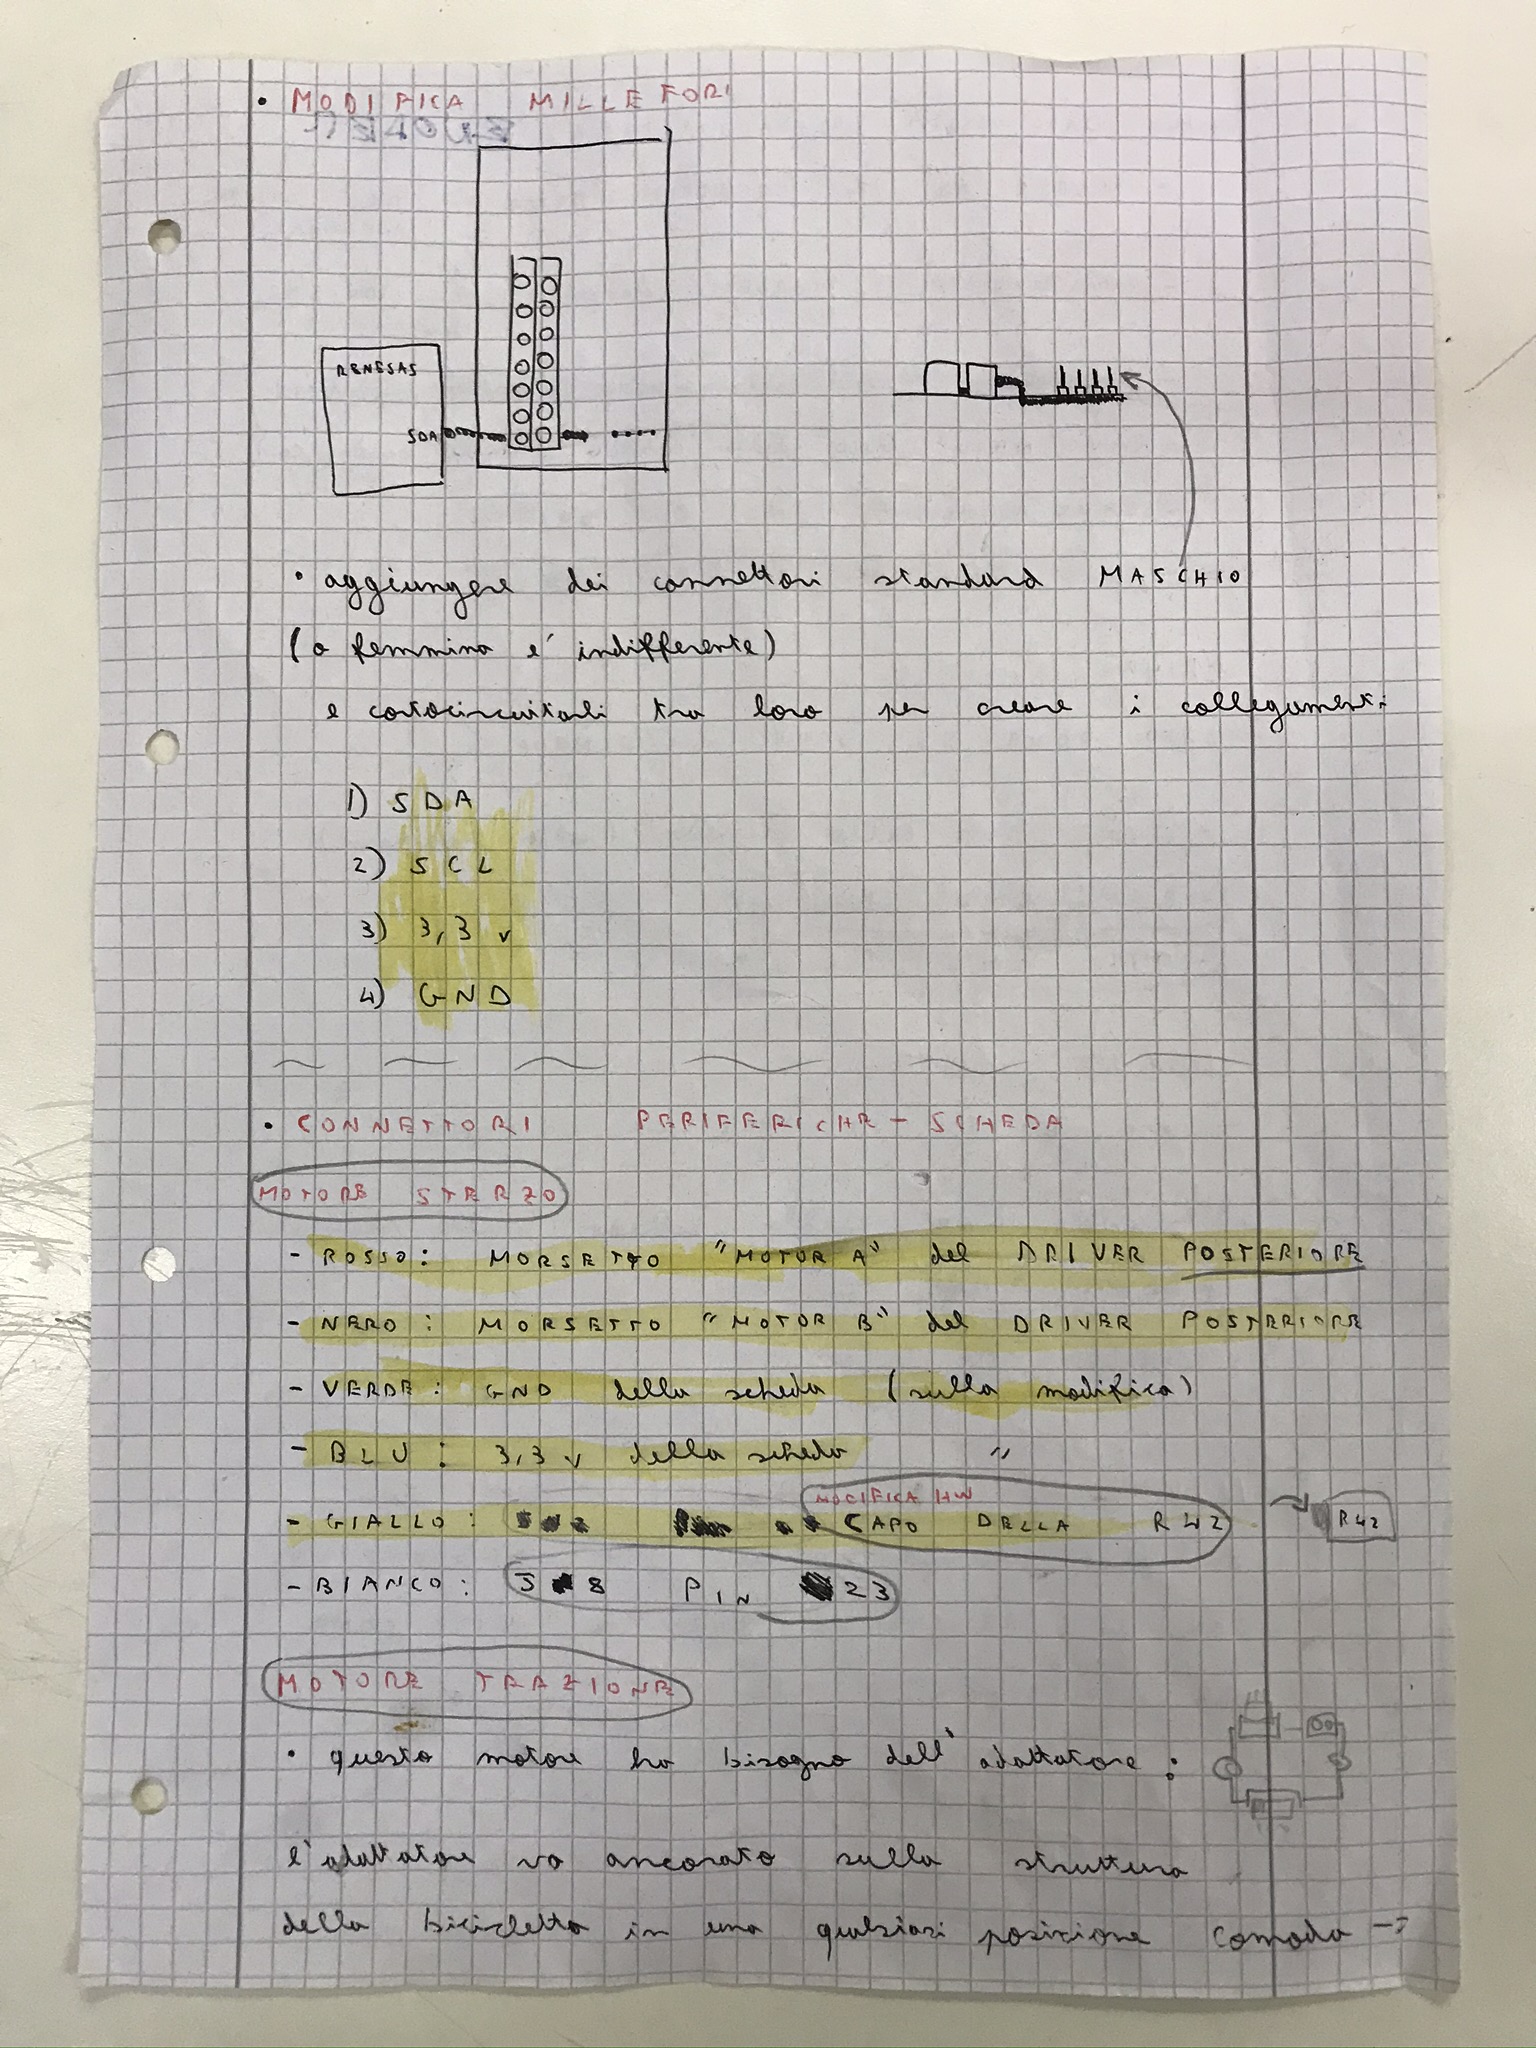 • MODIFICA MILLEFORI
RENESAS
SDA
• aggiungere dei connettori standard MASCHIO
(o femmina e' indifferente)
e cortocircuitarli tra loro per creare i collegamenti
1) SDA
2) SCL
3) 3,3 v
4) GND
• CONNETTORI PERIFERICHE - SCHEDA
MOTORE STERZO
- ROSSO: MORSETTO "MOTOR A" del DRIVER POSTERIORE
- NERO: MORSETTO "MOTOR B" del DRIVER POSTERIORE
- VERDE: GND della scheda (sulla modifica)
- BLU: 3,3 v della scheda "
MODIFICA HW
- GIALLO: CAPO DELLA R42 → R42
- BIANCO: J 8 PIN 23
MOTORE TRAZIONE
• questo motore ha bisogno dell'adattatore:
l'adattatore va ancorato sulla struttura
della bicicletta in una qualsiasi posizione comoda →